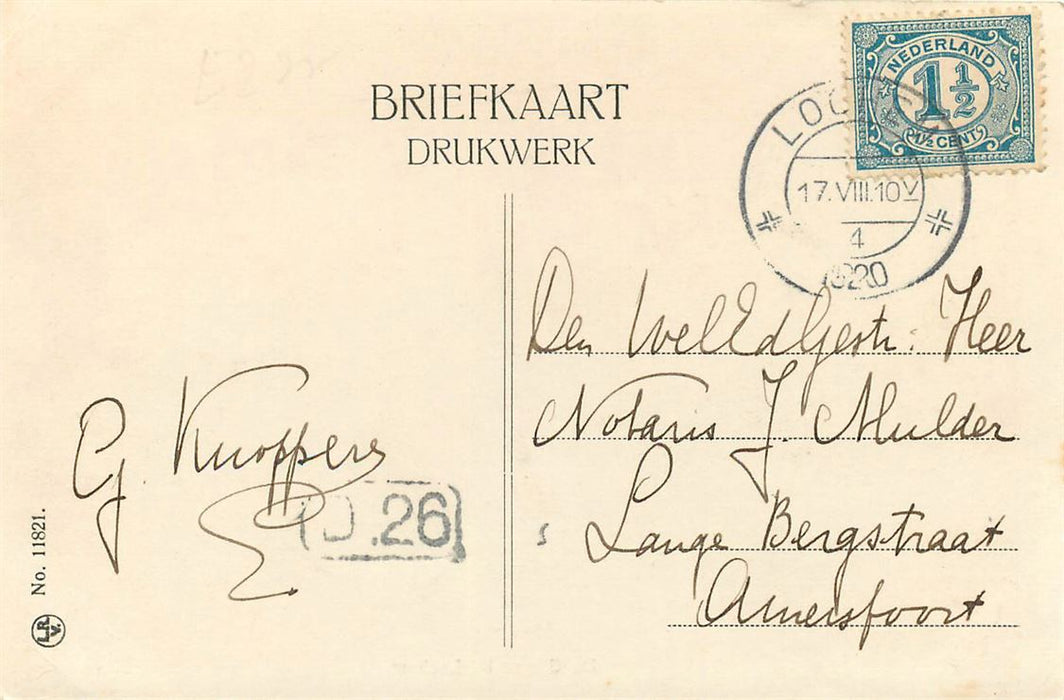 BRIEFKAART
DRUKWERK
NEDERLAND
1 1/2
1½ CENT
17.VIII.10V
4
1920
Den WelEdGestr: Heer
Notaris J. Mulder
Lange Bergstraat
Amersfoort
G Knoppers
D.26
No. 11821.
L.R.
V.